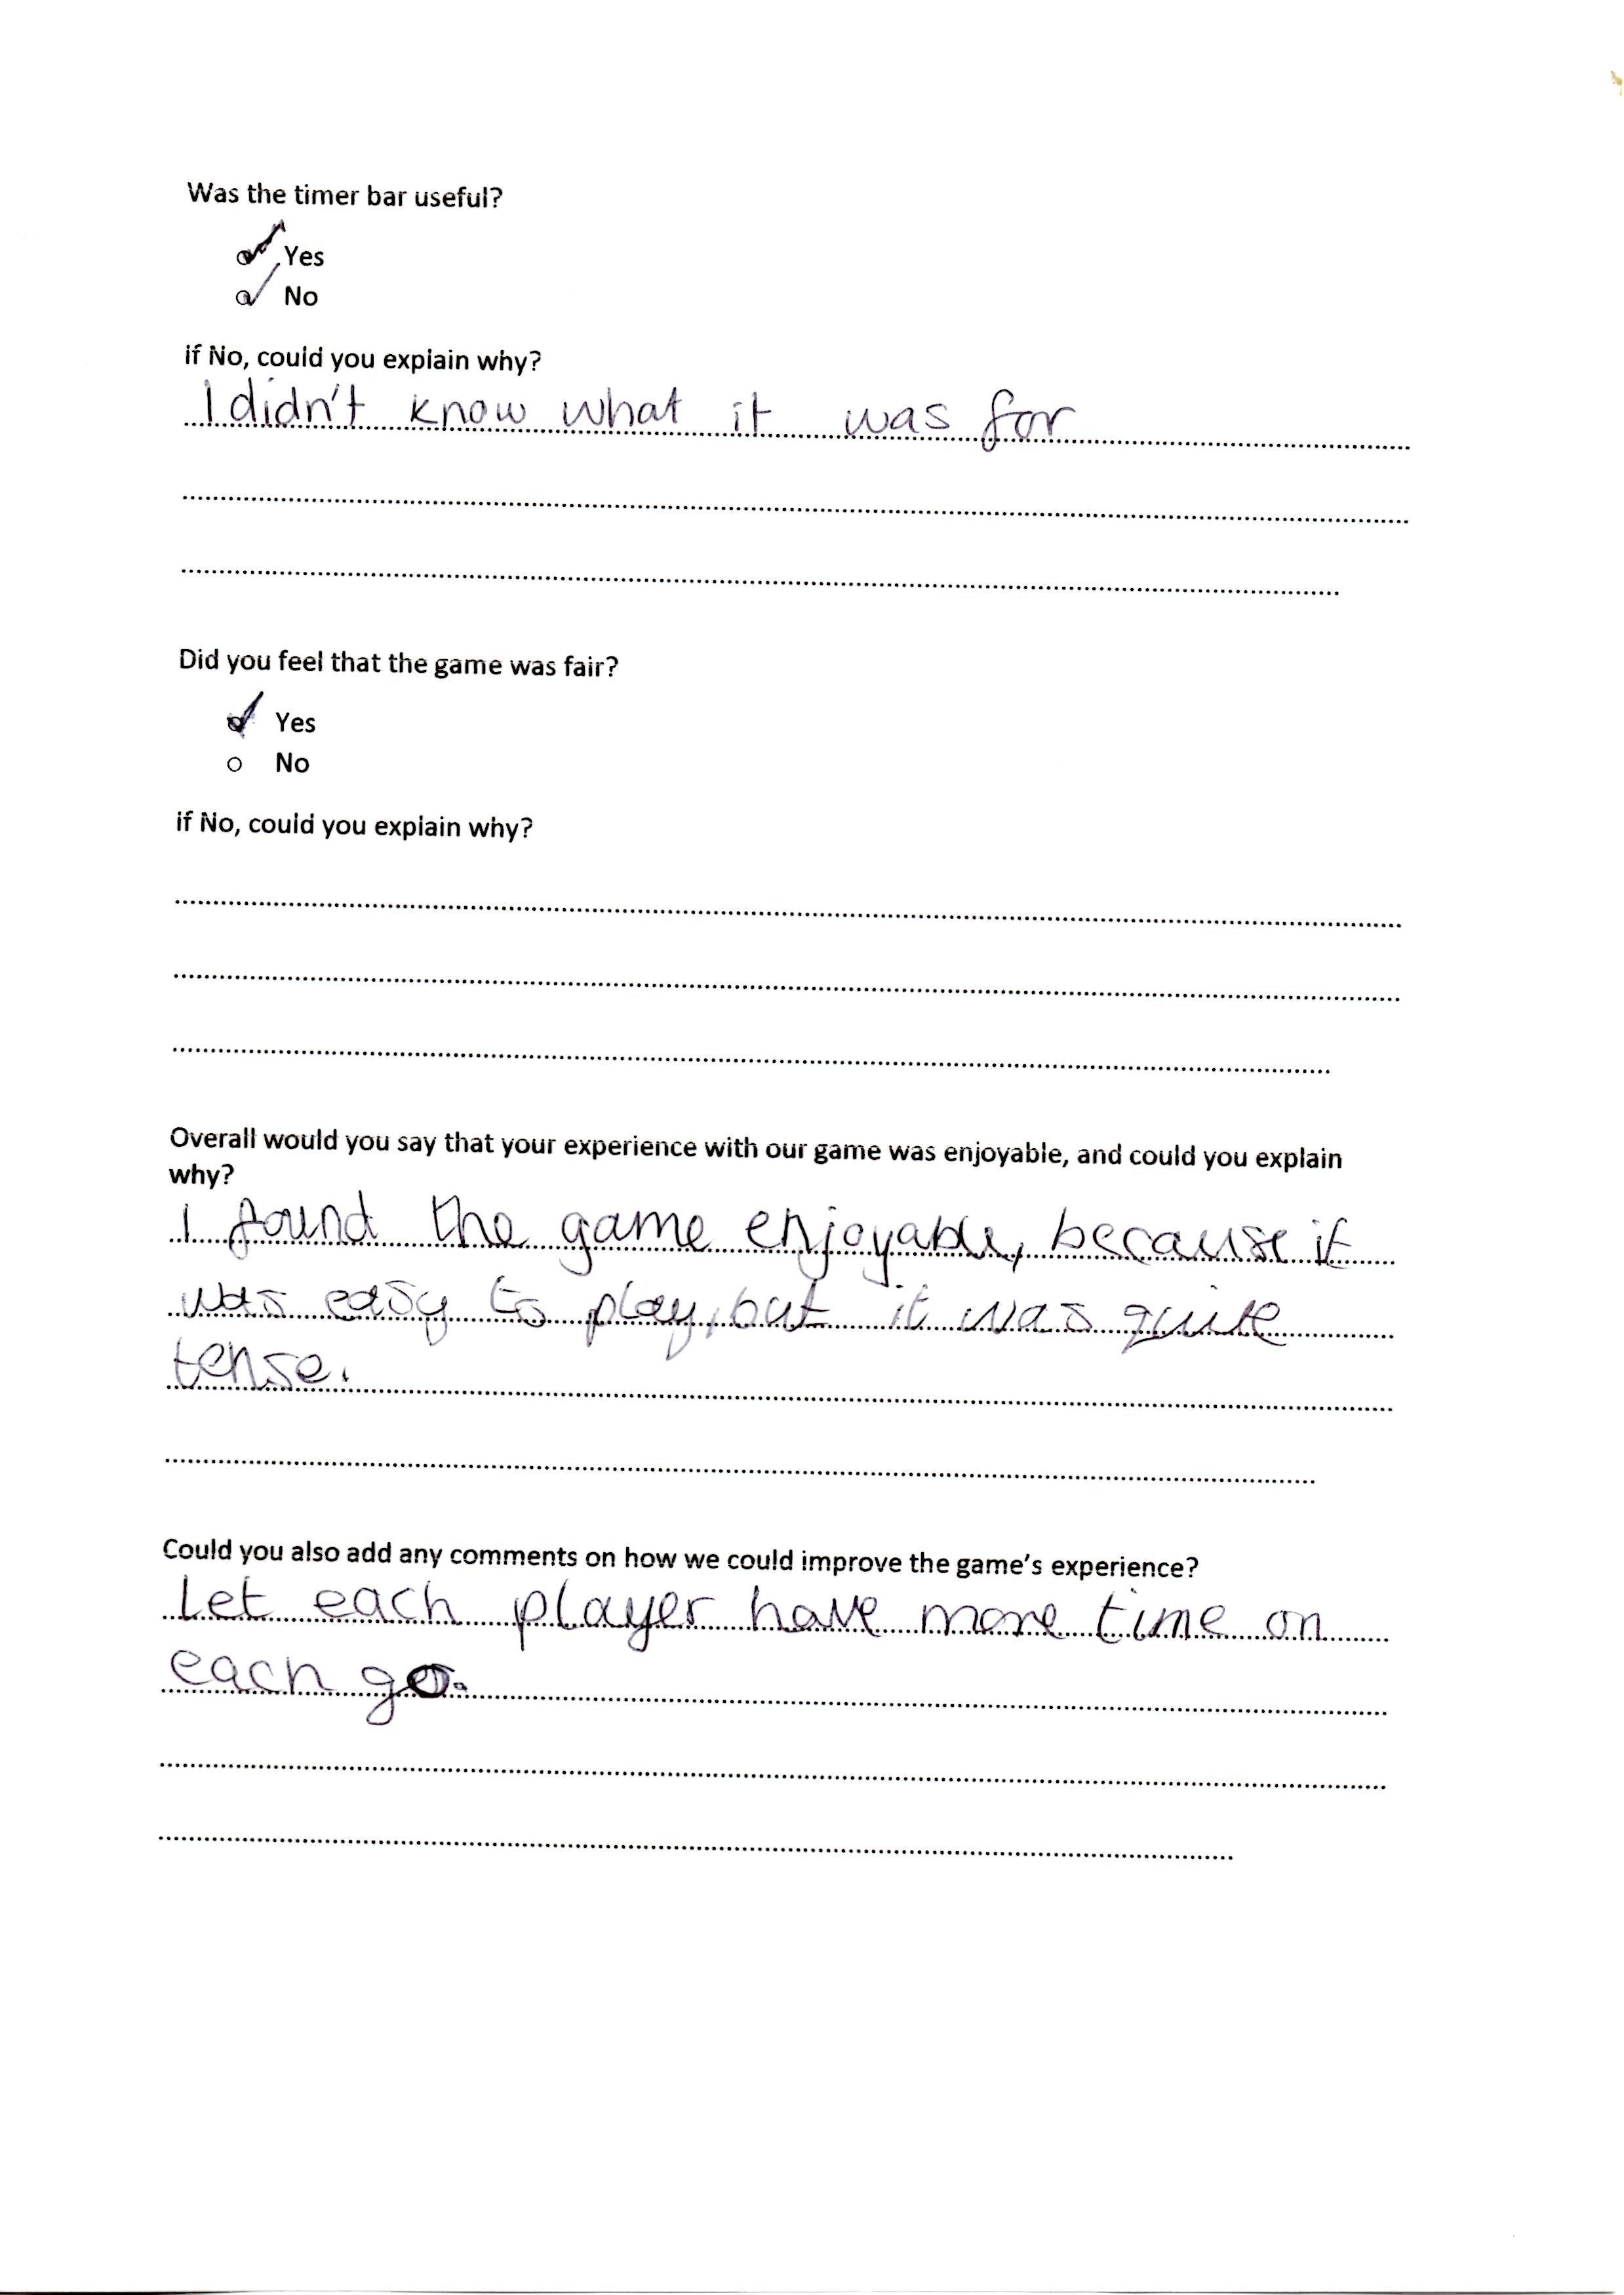 Was the timer bar useful?
Yes
No
if No, could you explain why?
I didn't know what it was for
Did you feel that the game was fair?
Yes
No
if No, could you explain why?
Overall would you say that your experience with our game was enjoyable, and could you explain
why?
I found the game enjoyable, because it
was easy to play, but it was quite
tense.
Could you also add any comments on how we could improve the game's experience?
Let each player have more time on
each go.